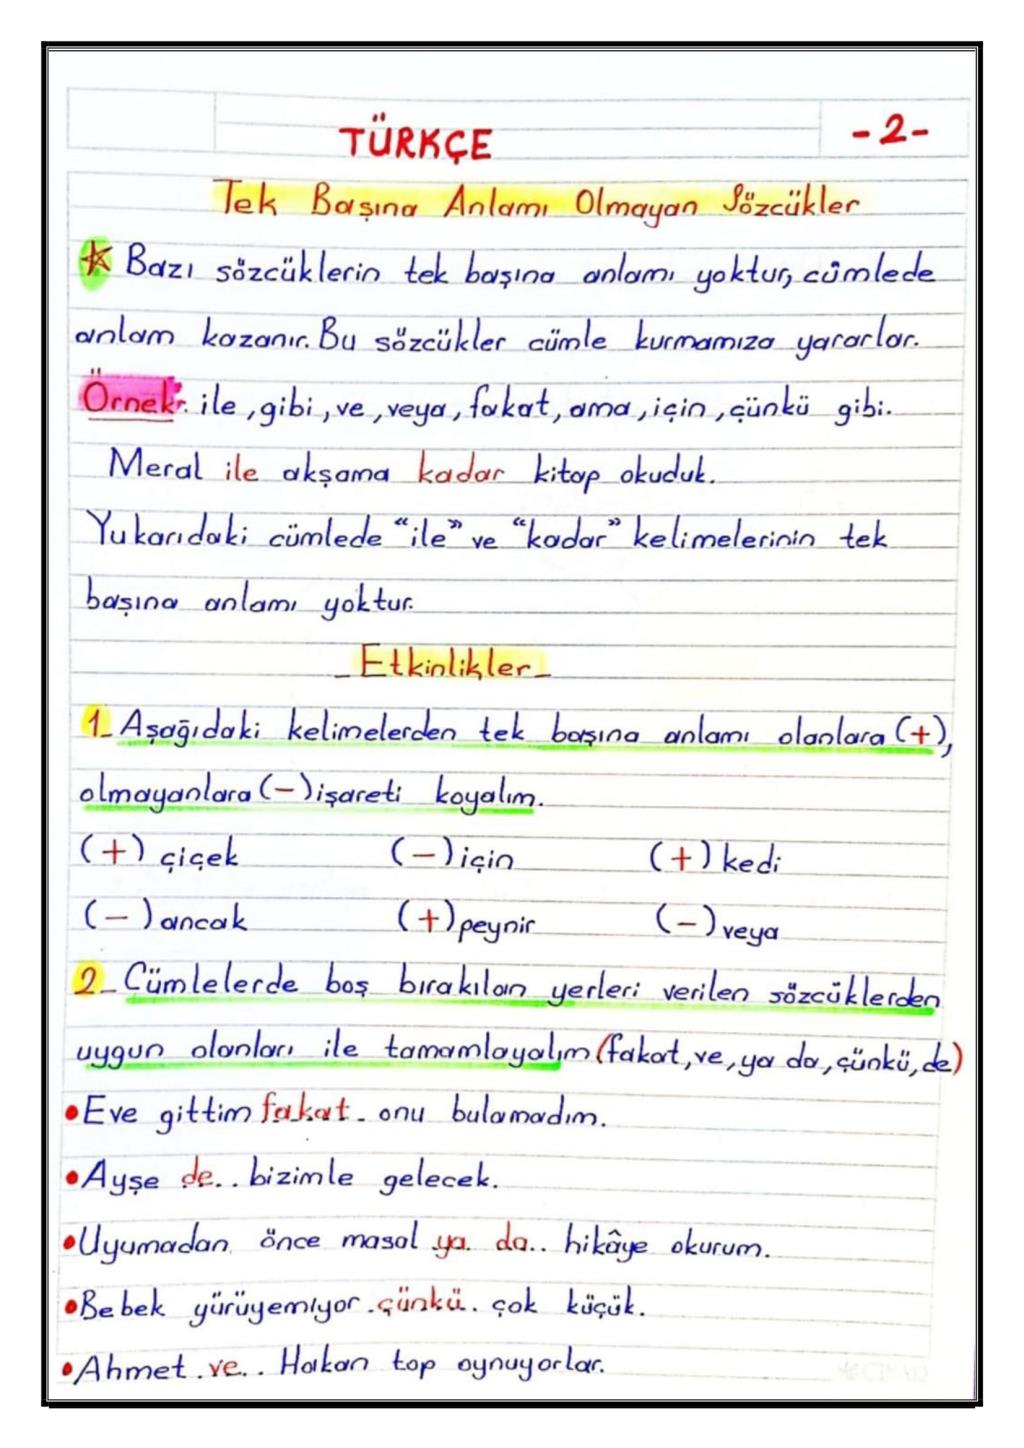 TÜRKÇE
-2-
Tek Başına Anlamı Olmayan Sözcükler
* Bazı sözcüklerin tek başına anlamı yoktur, cümlede
anlam kazanır. Bu sözcükler cümle kurmamıza yararlar.
Örnek: ile, gibi, ve, veya, fakat, ama, için, çünkü gibi.
Meral ile akşama kadar kitap okuduk.
Yukarıdaki cümlede "ile" ve "kadar" kelimelerinin tek
başına anlamı yoktur.
_ Etkinlikler _
1_ Aşağıdaki kelimelerden tek başına anlamı olanlara (+),
olmayanlara (-) işareti koyalım.
(+) çiçek (-) için (+) kedi
(-) ancak (+) peynir (-) veya
2_ Cümlelerde boş bırakılan yerleri verilen sözcüklerden
uygun olanları ile tamamlayalım (fakat, ve, ya da, çünkü, de)
• Eve gittim fakat. onu bulamadım.
• Ayşe de.. bizimle gelecek.
• Uyumadan önce masal ya da.. hikâye okurum.
• Bebek yürüyemiyor .çünkü. çok küçük.
• Ahmet .ve.. Hakan top oynuyorlar.